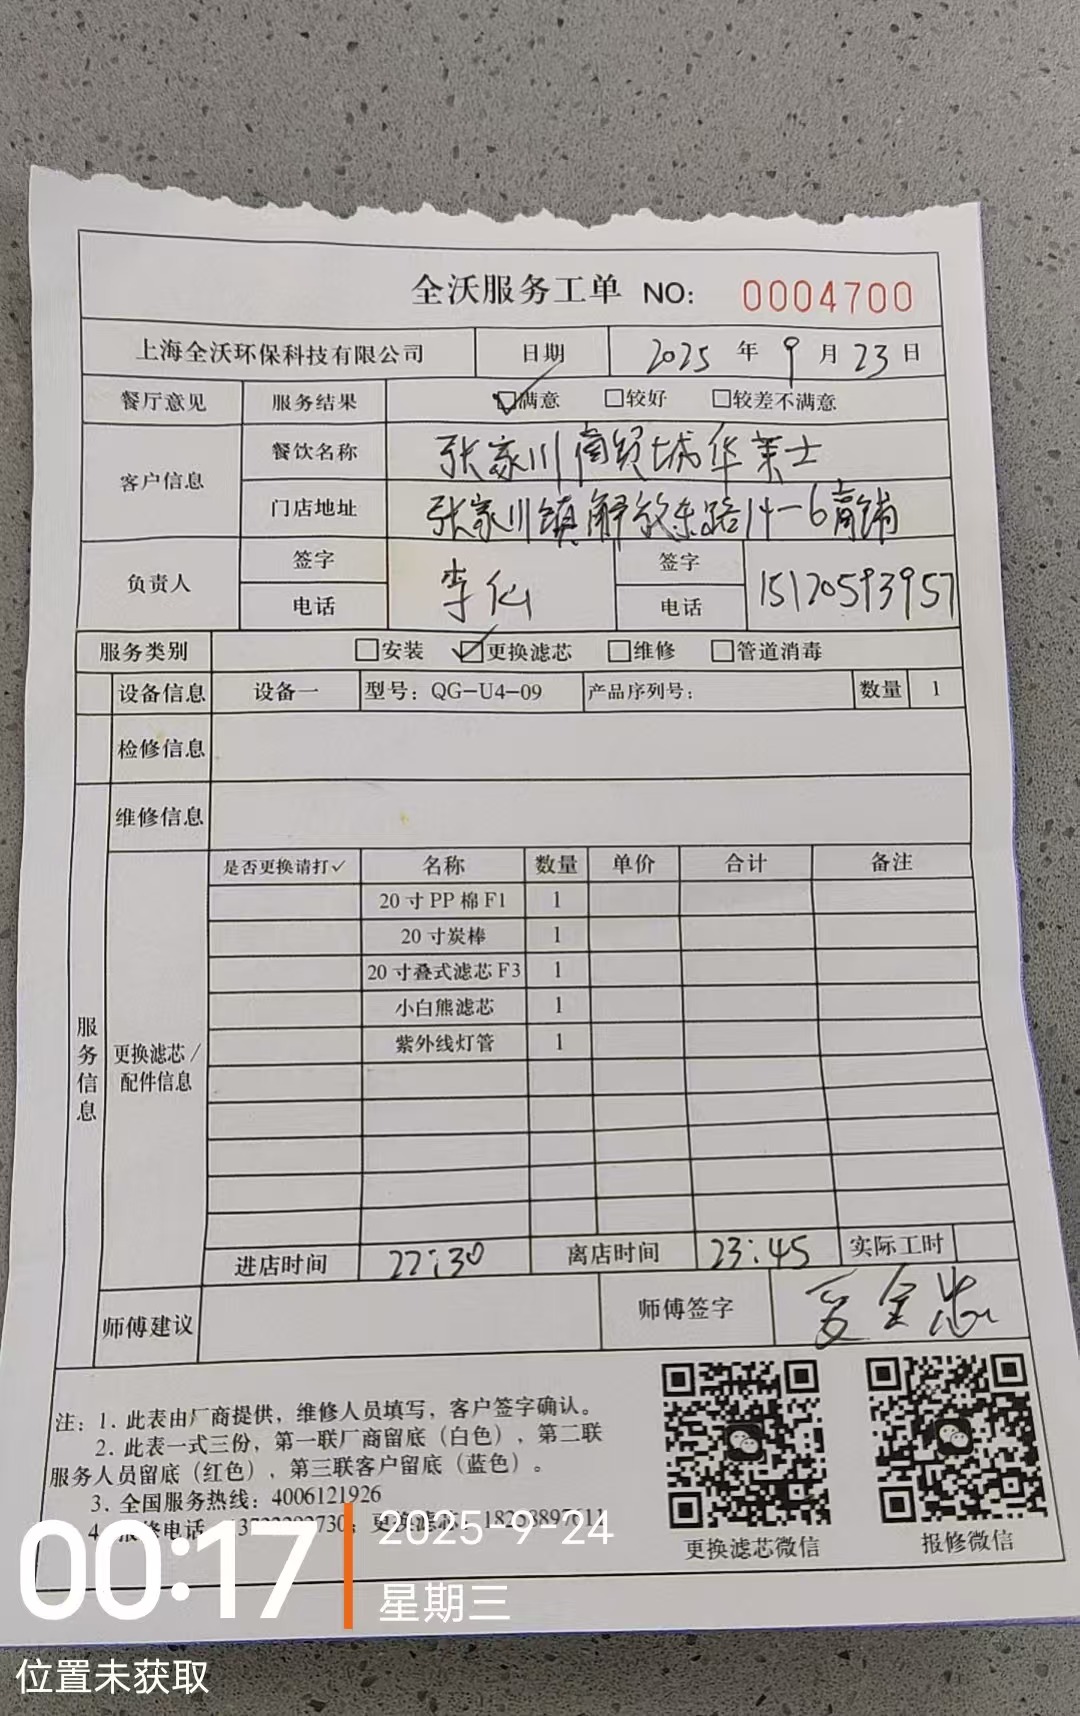 全沃服务工单 NO: 0004700
上海全沃环保科技有限公司 日期 2025 年 9 月 23 日
餐厅意见 服务结果 ☑满意 □较好 □较差不满意
客户信息 餐饮名称 张家川商贸城华莱士
门店地址 张家川镇解放东路14-6商铺
负责人 签字 李仙 签字
电话 电话 15120593957
服务类别 □安装 ☑更换滤芯 □维修 □管道消毒
设备信息 设备一 型号: QG-U4-09 产品序列号: 数量 1
检修信息
维修信息
服务信息
更换滤芯/配件信息
是否更换请打✓ 名称 数量 单价 合计 备注
20寸PP棉F1 1
20寸炭棒 1
20寸叠式滤芯F3 1
小白熊滤芯 1
紫外线灯管 1
进店时间 22:30 离店时间 23:45 实际工时
师傅建议 师傅签字 全忠
注: 1. 此表由厂商提供, 维修人员填写, 客户签字确认。
2. 此表一式三份, 第一联厂商留底 (白色), 第二联
服务人员留底 (红色), 第三联客户留底 (蓝色)。
3. 全国服务热线: 4006121926
4. 报修电话 更换滤芯:
更换滤芯微信 报修微信
00:17 2025-9-24
星期三
位置未获取